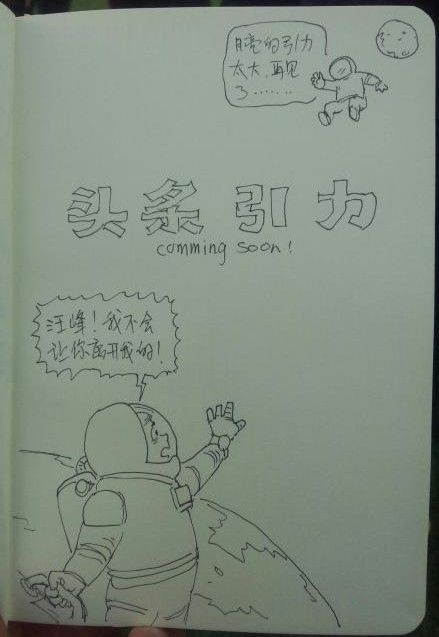 月亮的引力
太大，再见
了……
头条引力
comming soon!
汪峰！我不会
让你离开我的！